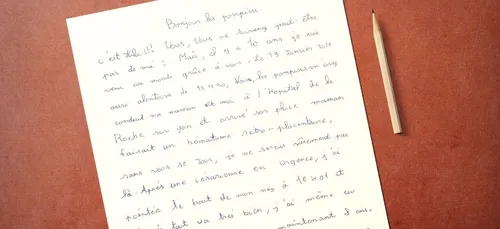 Bonjour les pompiers.
c'est !!! Vous, vous ne savez peut-être
pas de moi : Mais, il y a 10 ans je suis
venu au monde grâce à vous. Le 13 Janvier 2011
aux alentours de 12 H 40, Vous, les pompiers avez
conduit ma maman et moi à l'Hopital de la
Roche sur yon et arrivé sur place maman
faisait un hématome retro-placentaire,
sans vous ce jour, je ne serais sûrement pas
là. Après une césarienne en urgence, j'ai
pointée le bout de mon nez à 10 H 01 et
tout va très bien, j'ai même eu
maintenant 8 ans.